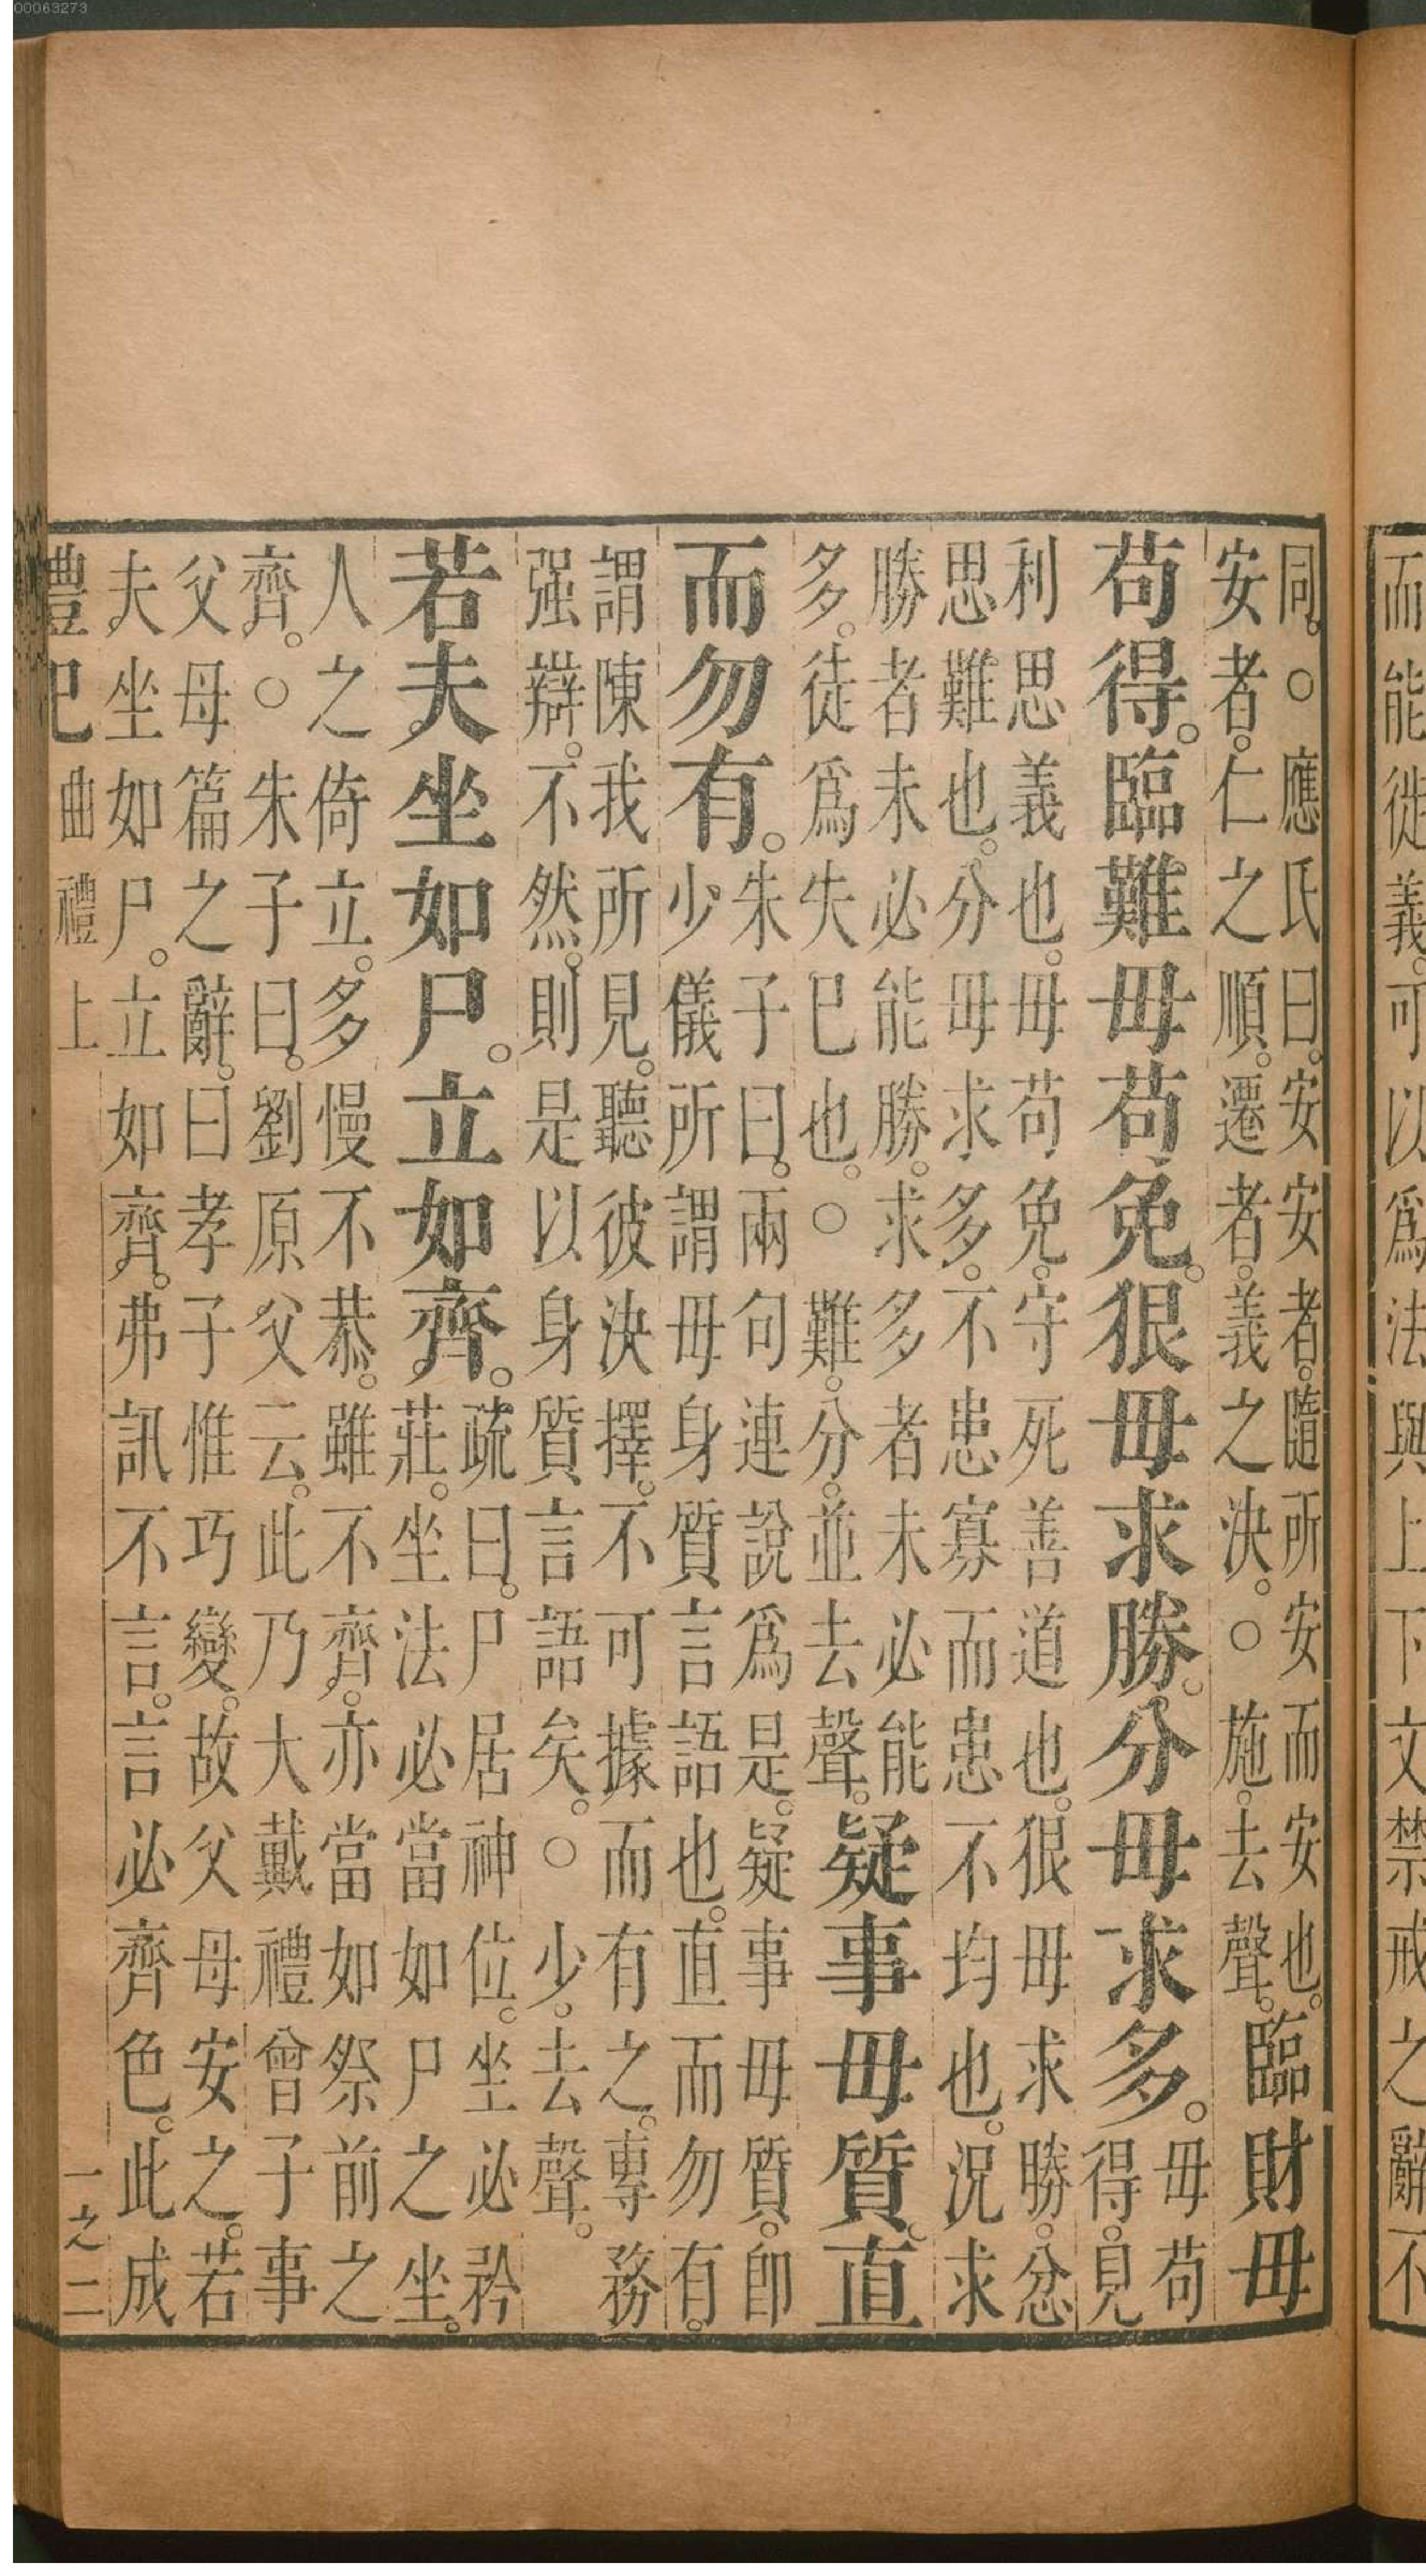 00063273
而能徙義。可以爲法與上下文禁戒之辭不
同。○應氏曰。安安者。隨所安而安也。
安者。仁之順。遷者。義之決。○施。去聲。
臨財毋
苟得。臨難毋苟免。狠毋求勝。分毋求多。
毋苟
得。見
利思義也。毋苟免。守死善道也。狠毋求勝。忿
思難也。分毋求多。不患寡而患不均也。況求
勝者未必能勝。求多者未必能
多。徒爲失已也。○難。分。並去聲。
疑事毋質。直
而勿有。
朱子曰。兩句連說爲是。疑事毋質。卽
少儀所謂毋身質言語也。直而勿有。
謂陳我所見。聽彼決擇。不可據而有之。專務
强辯。不然。則是以身質言語矣。○少。去聲。
若夫坐如尸。立如齊。
疏曰。尸居神位。坐必矜
莊。坐法必當如尸之坐。
人之倚立。多慢不恭。雖不齊。亦當如祭前之
齊。○朱子曰。劉原父云。此乃大戴禮曾子事
父母篇之辭。曰孝子惟巧變。故父母安之。若
夫坐如尸。立如齊。弗訊不言。言必齊色。此成
禮記 曲禮上 一之二